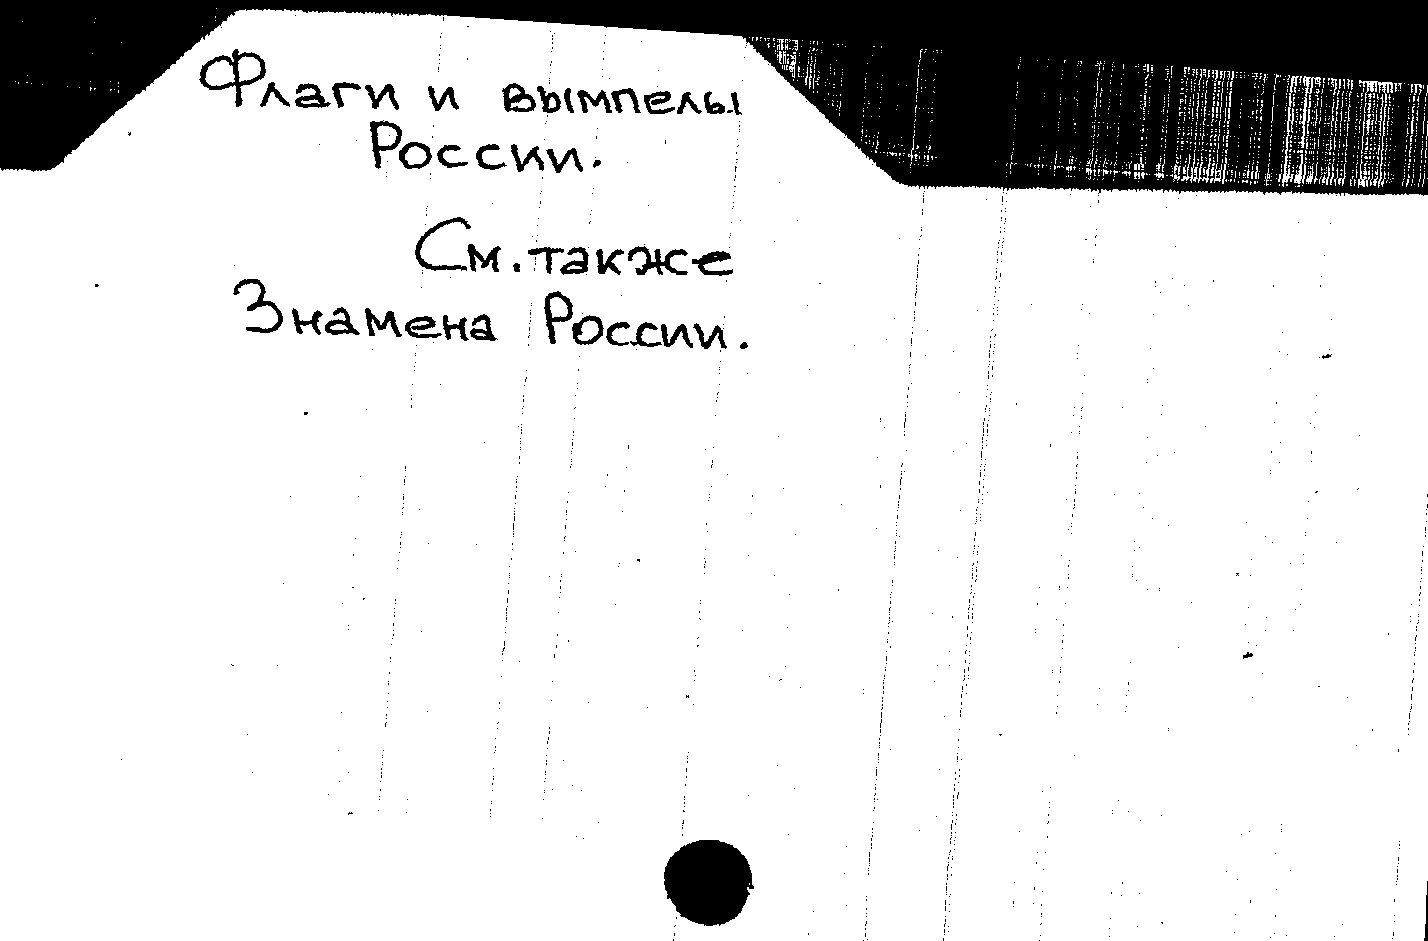 Флаги и вымпелы
России.
См. также
Знамена России.